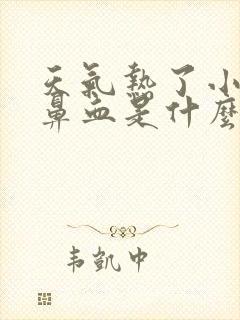 天氣熱了小
鼻血是什麼
韦凱中